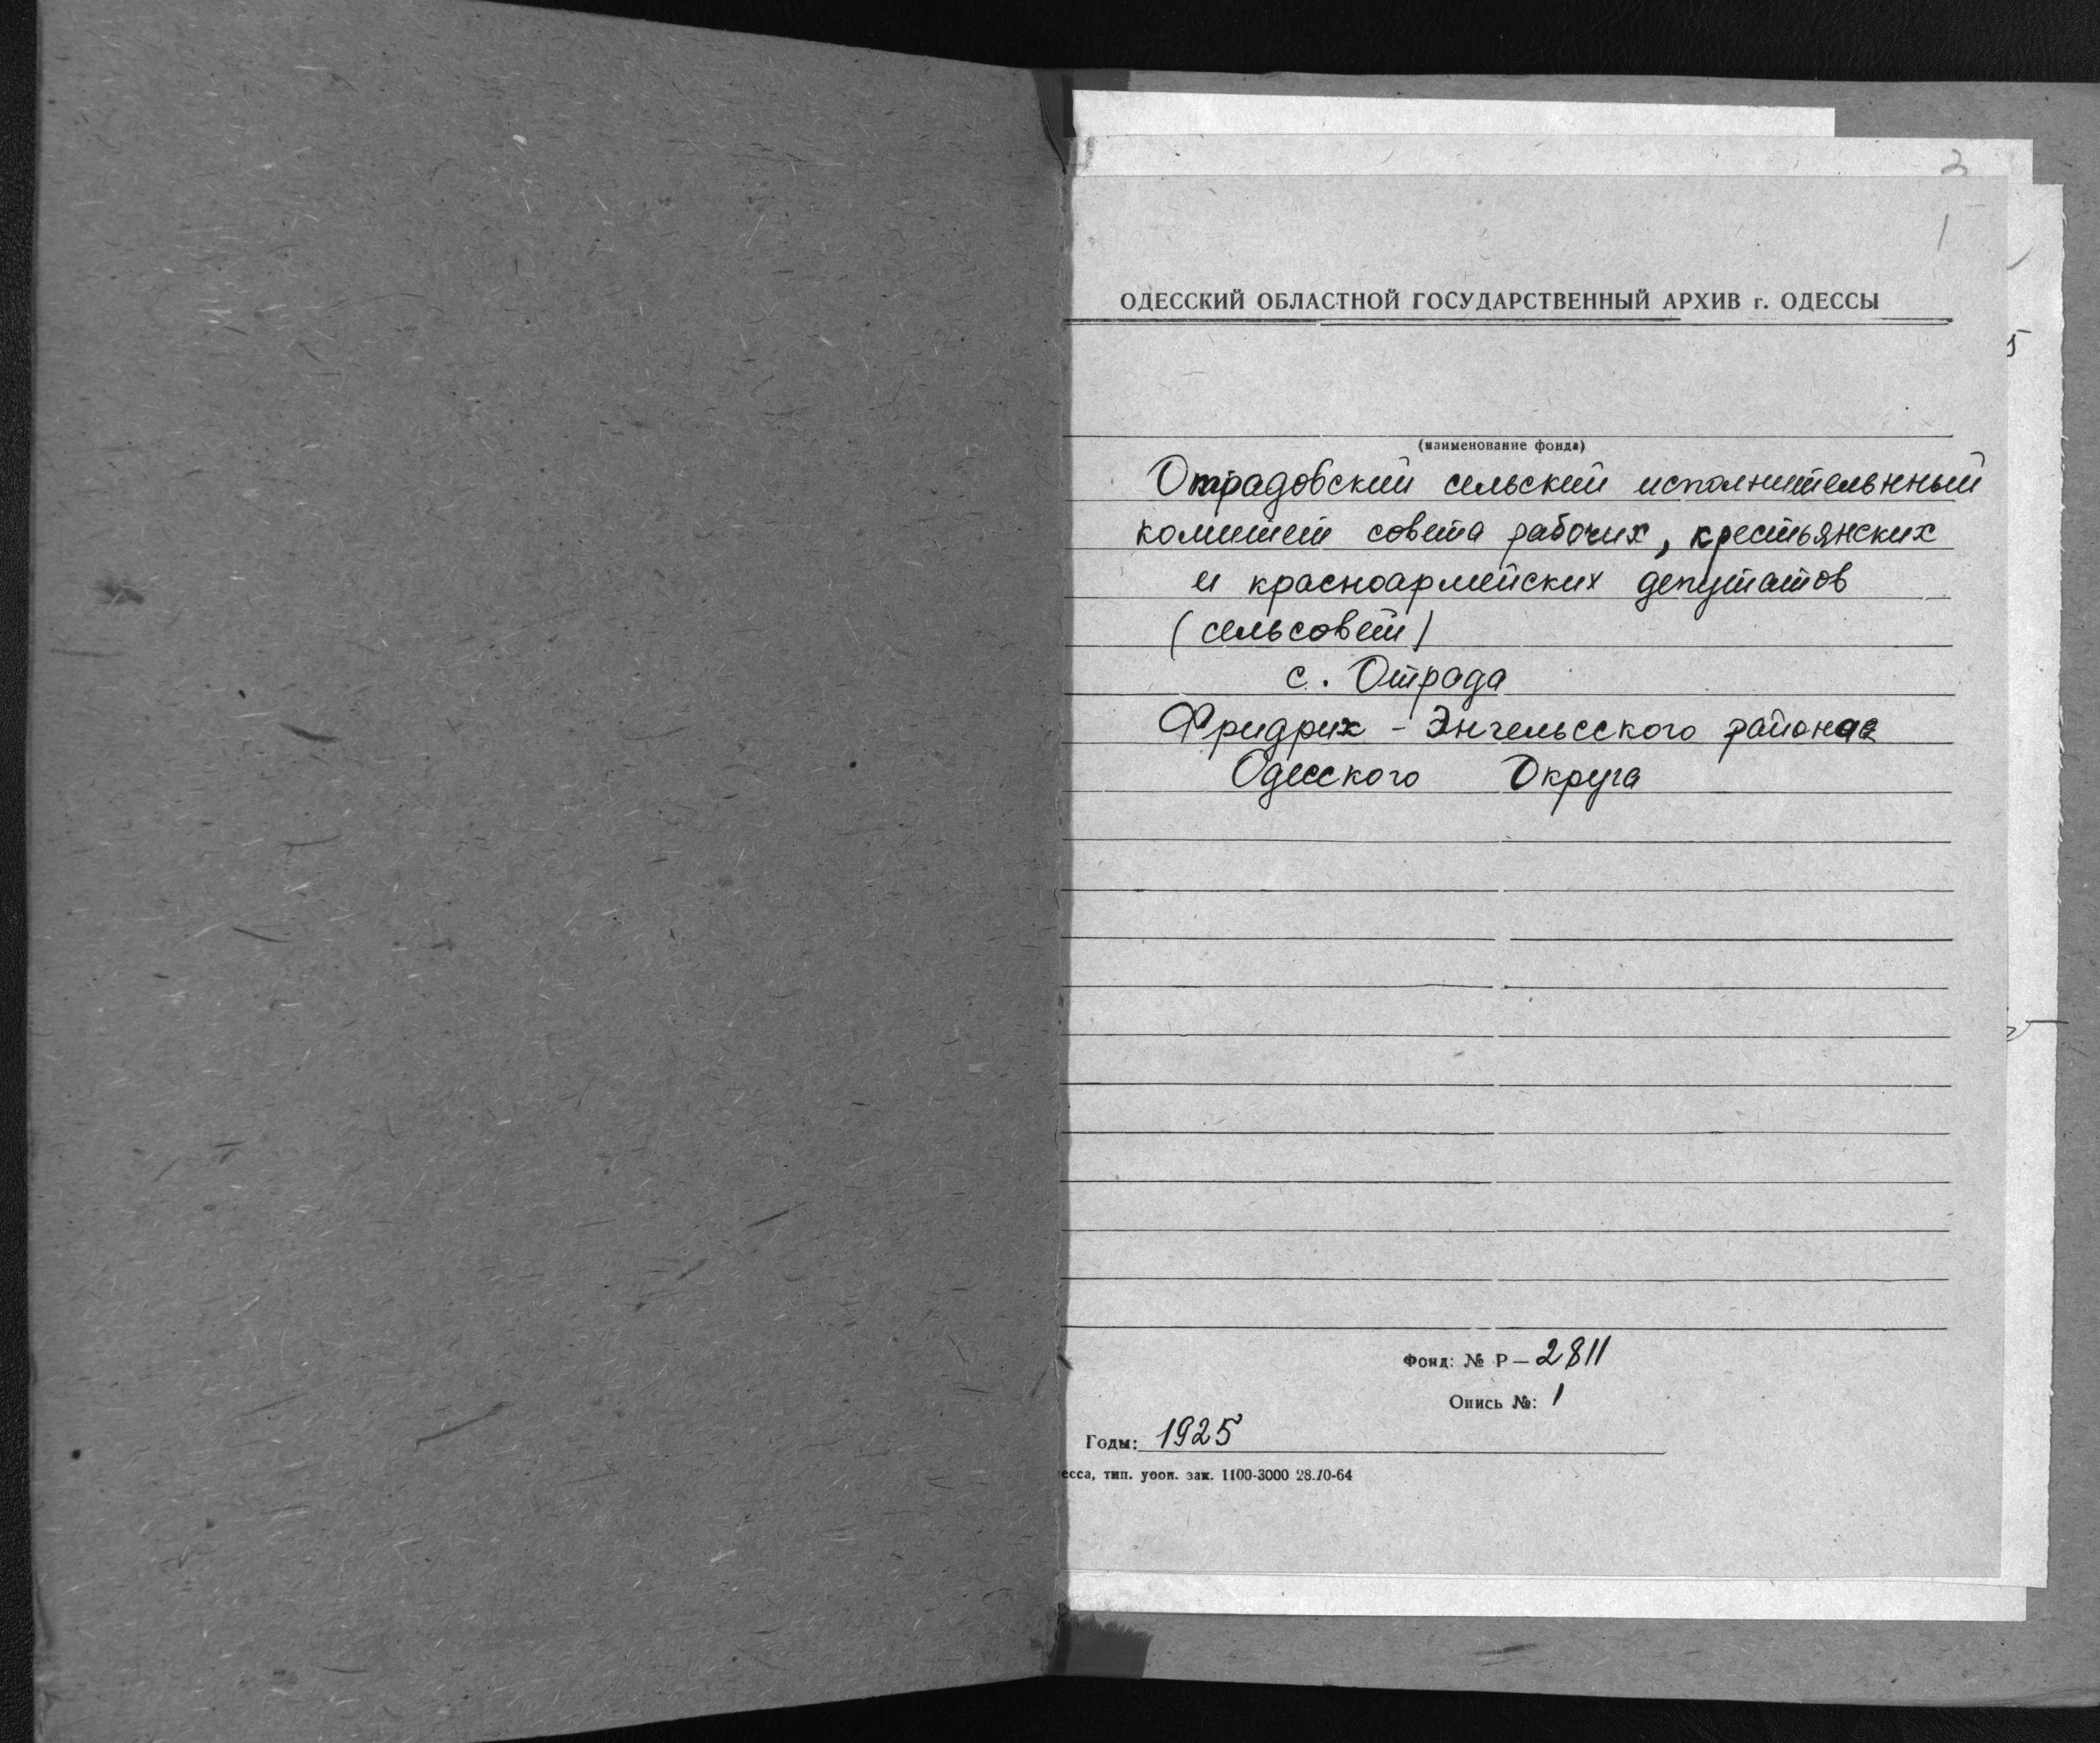 2
1
ОДЕССКИЙ ОБЛАСТНОЙ ГОСУДАРСТВЕННЫЙ АРХИВ г. ОДЕССЫ
5
(наименование фонда)
Отрадовский сельский исполнительнный
комитет совета рабочих, крестьянских
и красноармейских депутатов
(сельсовет)
с. Отрада
Фридрих - Энгельсского района
Одесского Округа
Фонд: № Р-2811
Опись №: 1
Годы: 1925
есса, тип. уоон. зак. 1100-3000 28.10-64